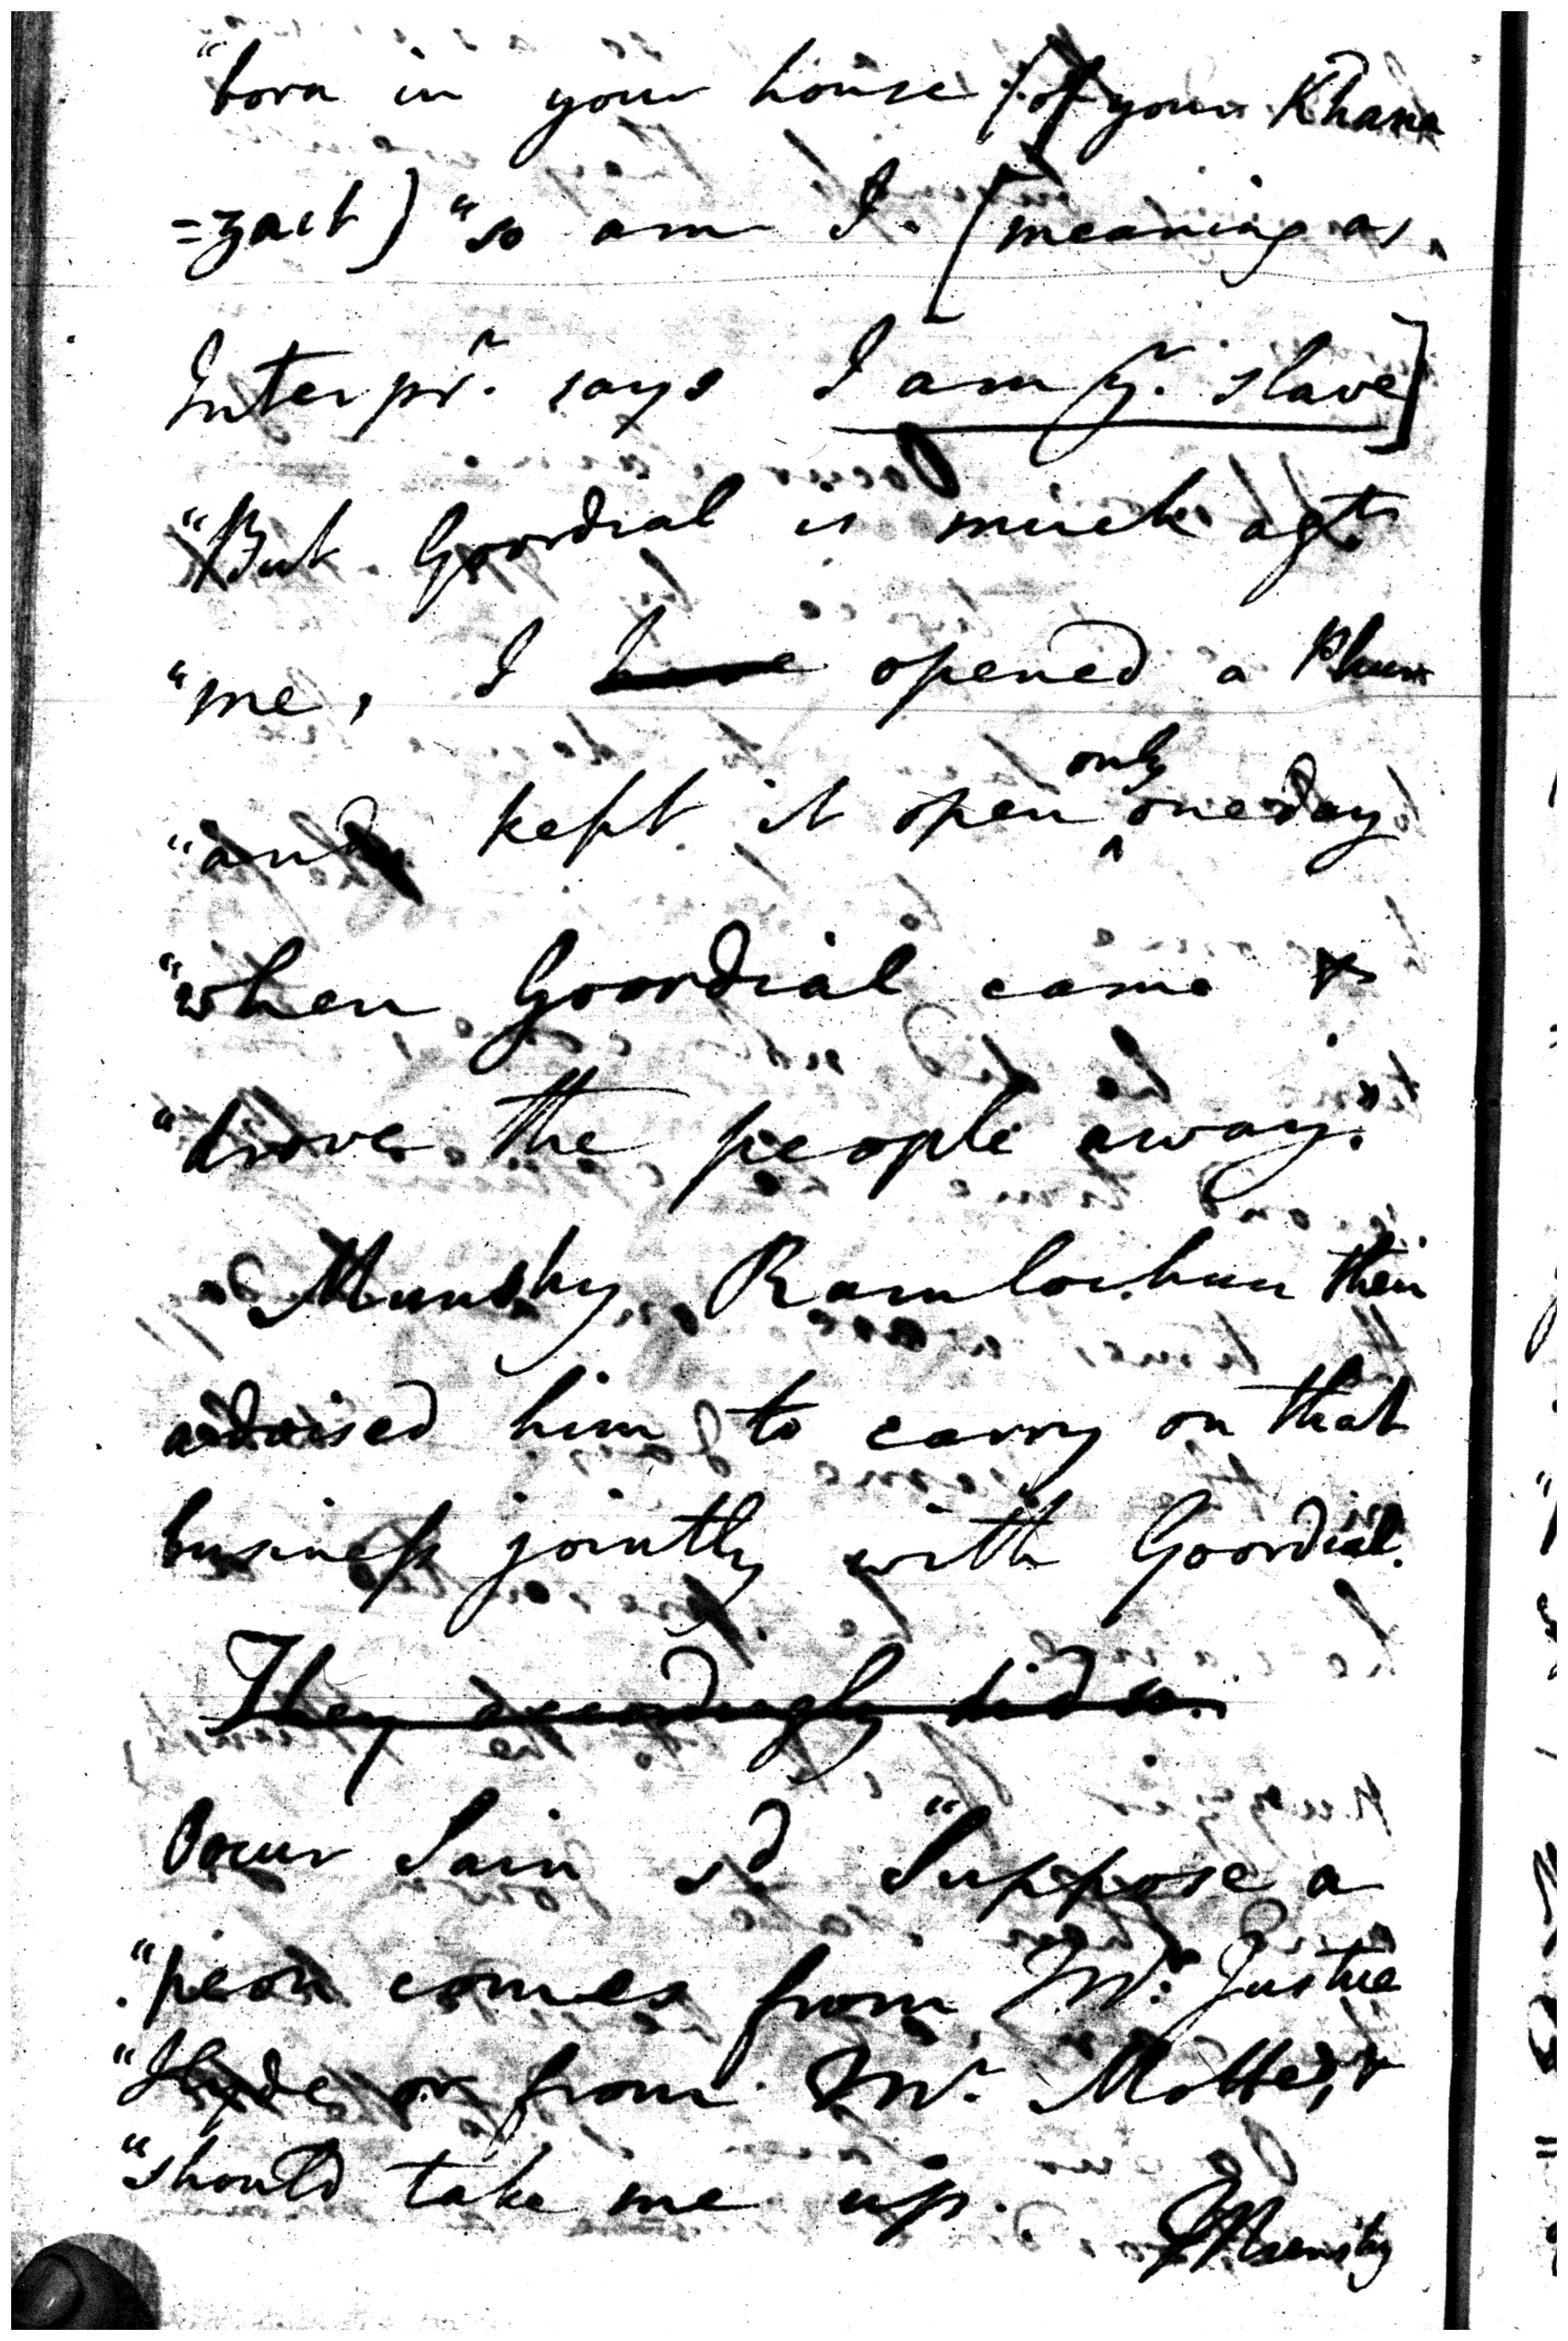 "born in your house (of your Khana
=zact) "so am I. [meaning as
Interpr. says I am yr. slave]
"But Goordial is much agt.
"me, I have opened a Phur
"and kept it open only one day
"when Goordial came &
"drove the people away."
Munshy Ramlochun then
advised him to carry on that
business jointly with Goordial.
They accordingly did so.
Sain sd. "Suppose a
"peon comes from Mr. Justice
"Hyde, or from Mr. Motte, &
"should take me up.
Munshy